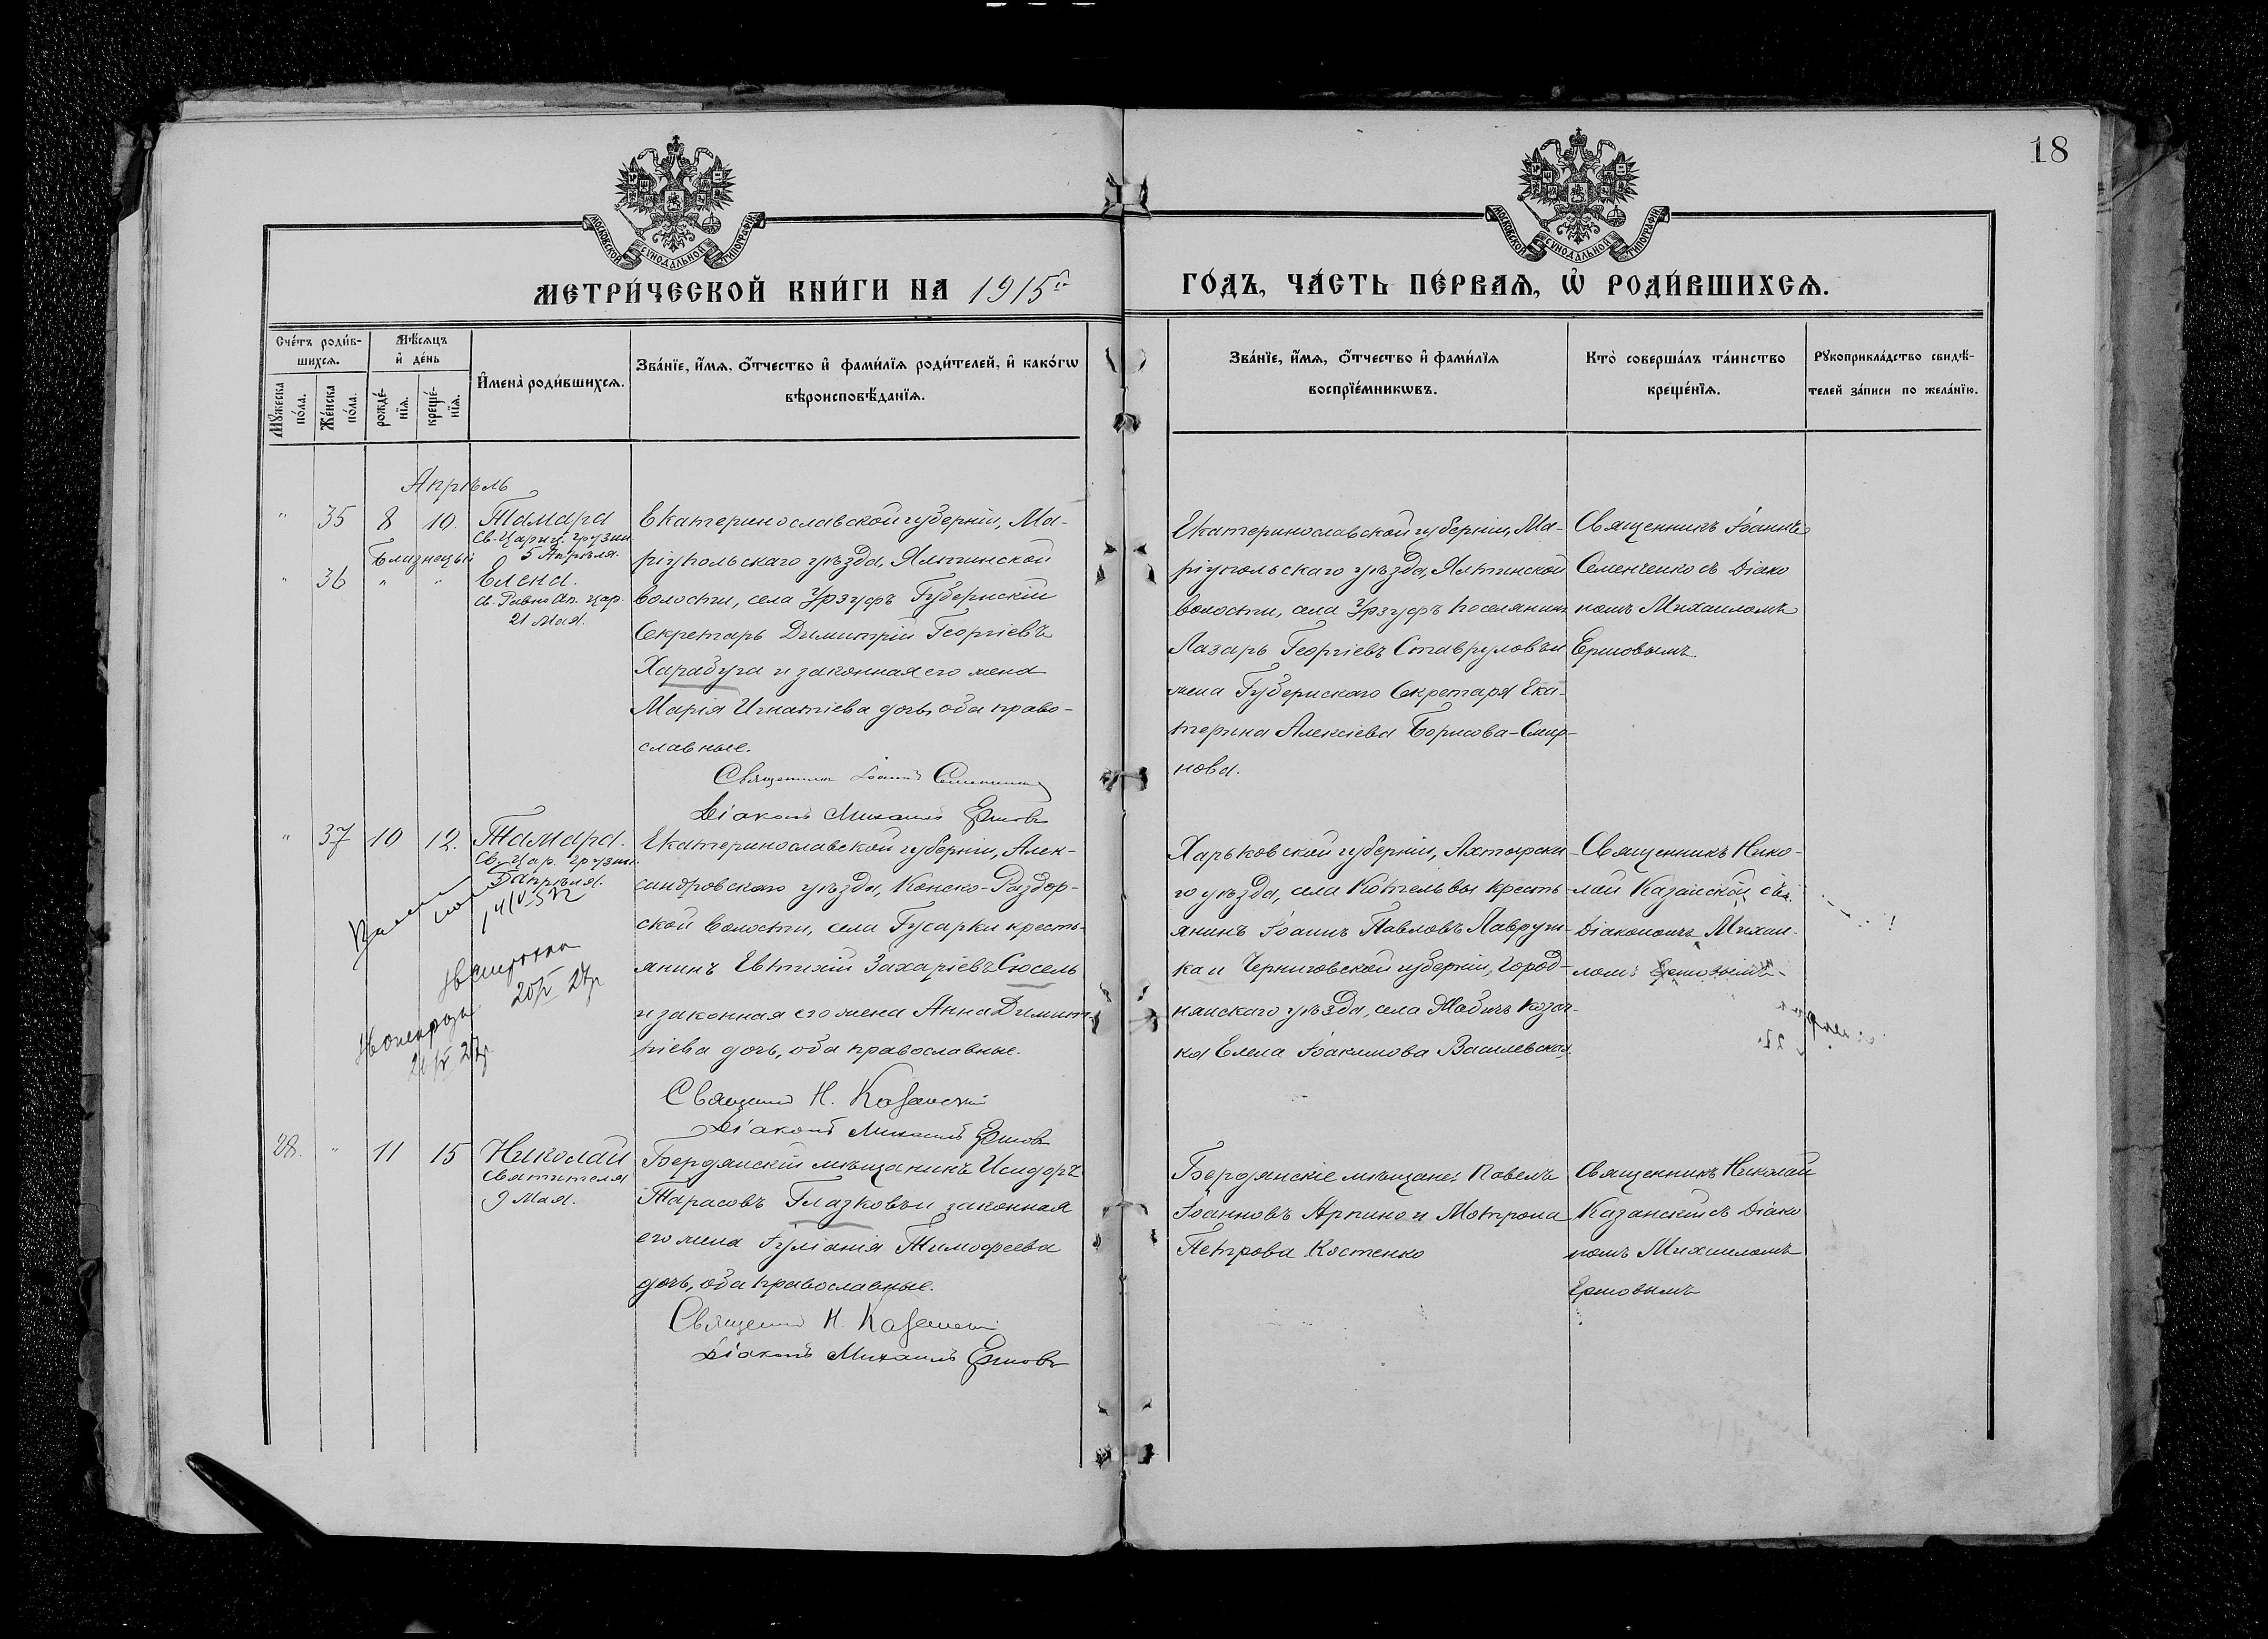 18
МОСКОВСКОЙ СѴНОДАЛЬНОЙ ТИПОГРАФІИ
МОСКОВСКОЙ СѴНОДАЛЬНОЙ ТИПОГРАФІИ
МЕТРИ́ЧЕСКОЙ КНИ́ГИ НА 1915й
ГО́ДЪ, ЧА́СТЬ ПЕ́РВАЯ, Ѽ РОДИ́ВШИХСѦ.
Сче́тъ роди́в-
шихсѧ.
Мꙋ́жеска
по́ла.
Же́нска
по́ла.
Мѣ́сѧцъ
и҆ де́нь
рожде́-
нїѧ.
креще́-
нїѧ.
И҆мена̀ роди́вшихсѧ.
Зва́нїе, и҆́мѧ, ѻ҆́тчество и҆ фами́лїѧ роди́телей, и҆ како́гѡ
вѣроисповѣ́данїѧ.
Зва́нїе, и҆́мѧ, ѻ҆́тчество и҆ фами́лїѧ
воспрїе́мникѡвъ.
Кто̀ соверша́лъ та́инство
креще́нїѧ.
Рꙋкоприкла́дство свидѣ́-
телей за́писи по жела́нїю.
Апрѣль
" 35 8 10. Тамара
Св. Цариц. Грузии
5 Апрѣля.
Близнецы
" 36 " " Елена.
св. Равно Ап. цар.
21 Мая.
Екатеринославской губерніи, Ма-
ріупольскаго уѣзда, Ялтинской
волости, села Урзуфъ Губернскій
Секретарь Димитрій Георгіевъ
Харабуга и законная его жена
Марія Игнатіева дочь, оба право-
славные.
Священникъ Іоаннъ Семенченко
Діаконъ Михаилъ Ершовъ
Екатеринославской губерніи, Ма-
ріупольскаго уѣзда, Ялтинской
волости, села Урзуфъ поселянинъ
Лазарь Георгіевъ Ставруловъ и
жена Губернскаго Секретаря Ека-
терина Алексіева Борисова-Смир-
нова.
Священникъ Іоаннъ
Семенченко съ Діако
номъ Михаиломъ
Ершовымъ.
" 37 10 12. Тамара.
Св. Цар. Грузии.
5 апрѣля.
Екатеринославской губерніи, Алек-
сандровскаго уѣзда, Конско-Раздор-
ской волости, села Гусарки кресть-
янинъ Евтихій Захаріевъ Сюсель
и законная его жена Анна Димит-
ріева дочь, оба православные.
Священникъ Н. Казанскій
Діаконъ Михаилъ Ершовъ
Харьковской губерніи, Ахтырска-
го уѣзда, села Котельвы кресть-
янинъ Іоаннъ Павловъ Лаврушка
ка и Черниговской губерніи, Город-
нянскаго уѣзда, села Жабичъ козач-
ка Елена Іоакимова Василевская.
Священникъ Нико-
лай Казанскій съ
Діакономъ Михаи-
ломъ Ершовымъ
38. " 11 15 Николай
Святителя
9 Мая.
Бердянскій мѣщанинъ Исидоръ
Тарасовъ Глазковъ и законная
его жена Іуліанія Тимофеева
дочь, оба православные.
Священникъ Н. Казанскій
Діаконъ Михаилъ Ершовъ
Бердянскіе мѣщане: Павелъ
Іоанновъ Арпино и Мотрона
Петрова Костенко
Священникъ Николай
Казанскій съ Діако
номъ Михаиломъ
Ершовымъ